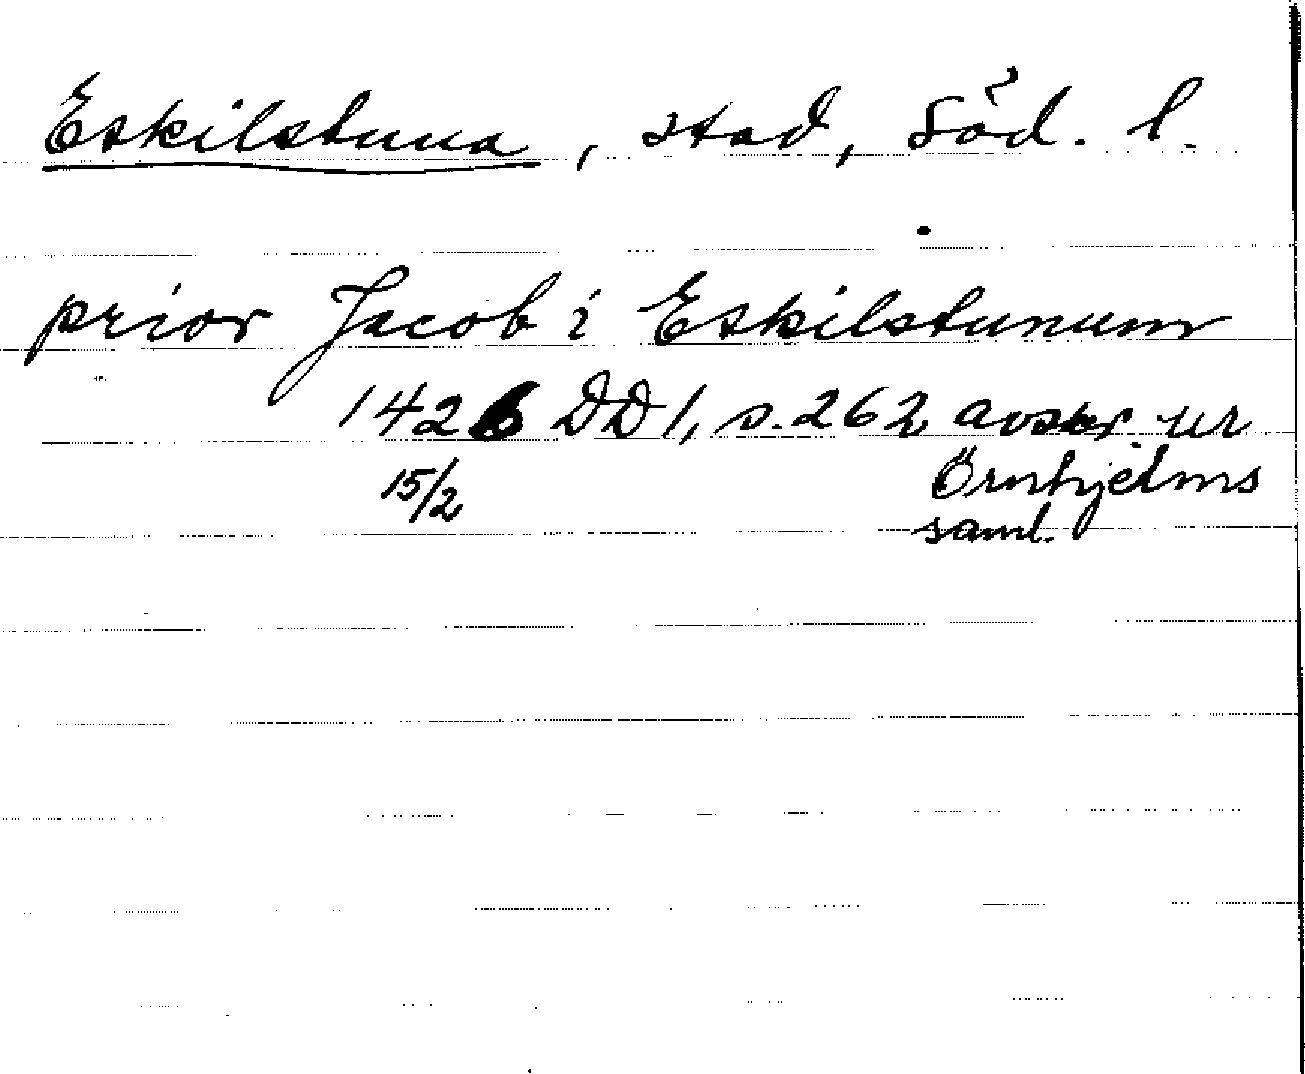 Eskilstuna, stad, Söd. l.
prior Jacob i Eskilstunum
1426 DD1, s. 262 avskr. ur
15/2 Örnhjelms
saml.